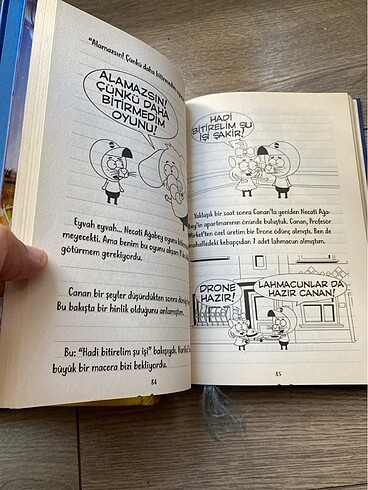 "Alamazsın! Çünkü daha bitirmedim
ALAMAZSIN!
ÇÜNKÜ DAHA
BİTİRMEDİK
OYUNU!
Eyvah eyvah... Necati Ağabey oyunu bitirme
meyecekti. Ama benim bu oyunu akşam
götürmem gerekiyordu.
Canan bir şeyler düşündükten sonra
Bu bakışta bir hinlik olduğunu anlamıştım.
Bu: "Hadi bitirelim şu işi" bakışıydı.
büyük bir macera bizi bekliyordu.
84
HADİ
BİTİRELİM ŞU
İŞİ ŞAKİR!
Yaklaşık bir saat sonra Canan'la yeniden Necati Ağa-
bey'in apartmanının önünde buluştuk. Canan, Profesör
Market'ten özel üretim bir Drone ödünç almıştı. Ben de
mahalledeki kebapçıdan 7 adet lahmacun almıştım.
DRONE
HAZIR!
LAHMACUNLAR DA
HAZIR CANAN!
85